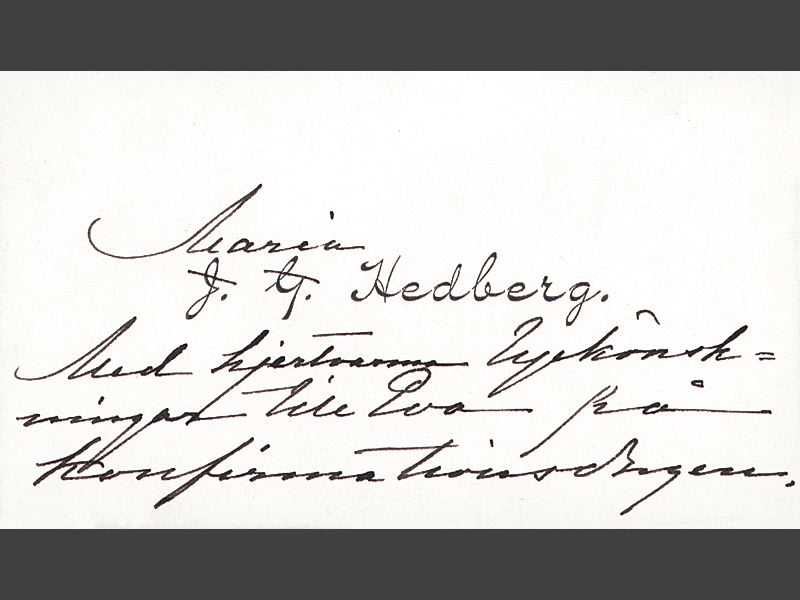 Maria
J. G. Hedberg.
Med hjertvarma Lyckönsk=
ningar till Eva på
konfirmationsdagen.